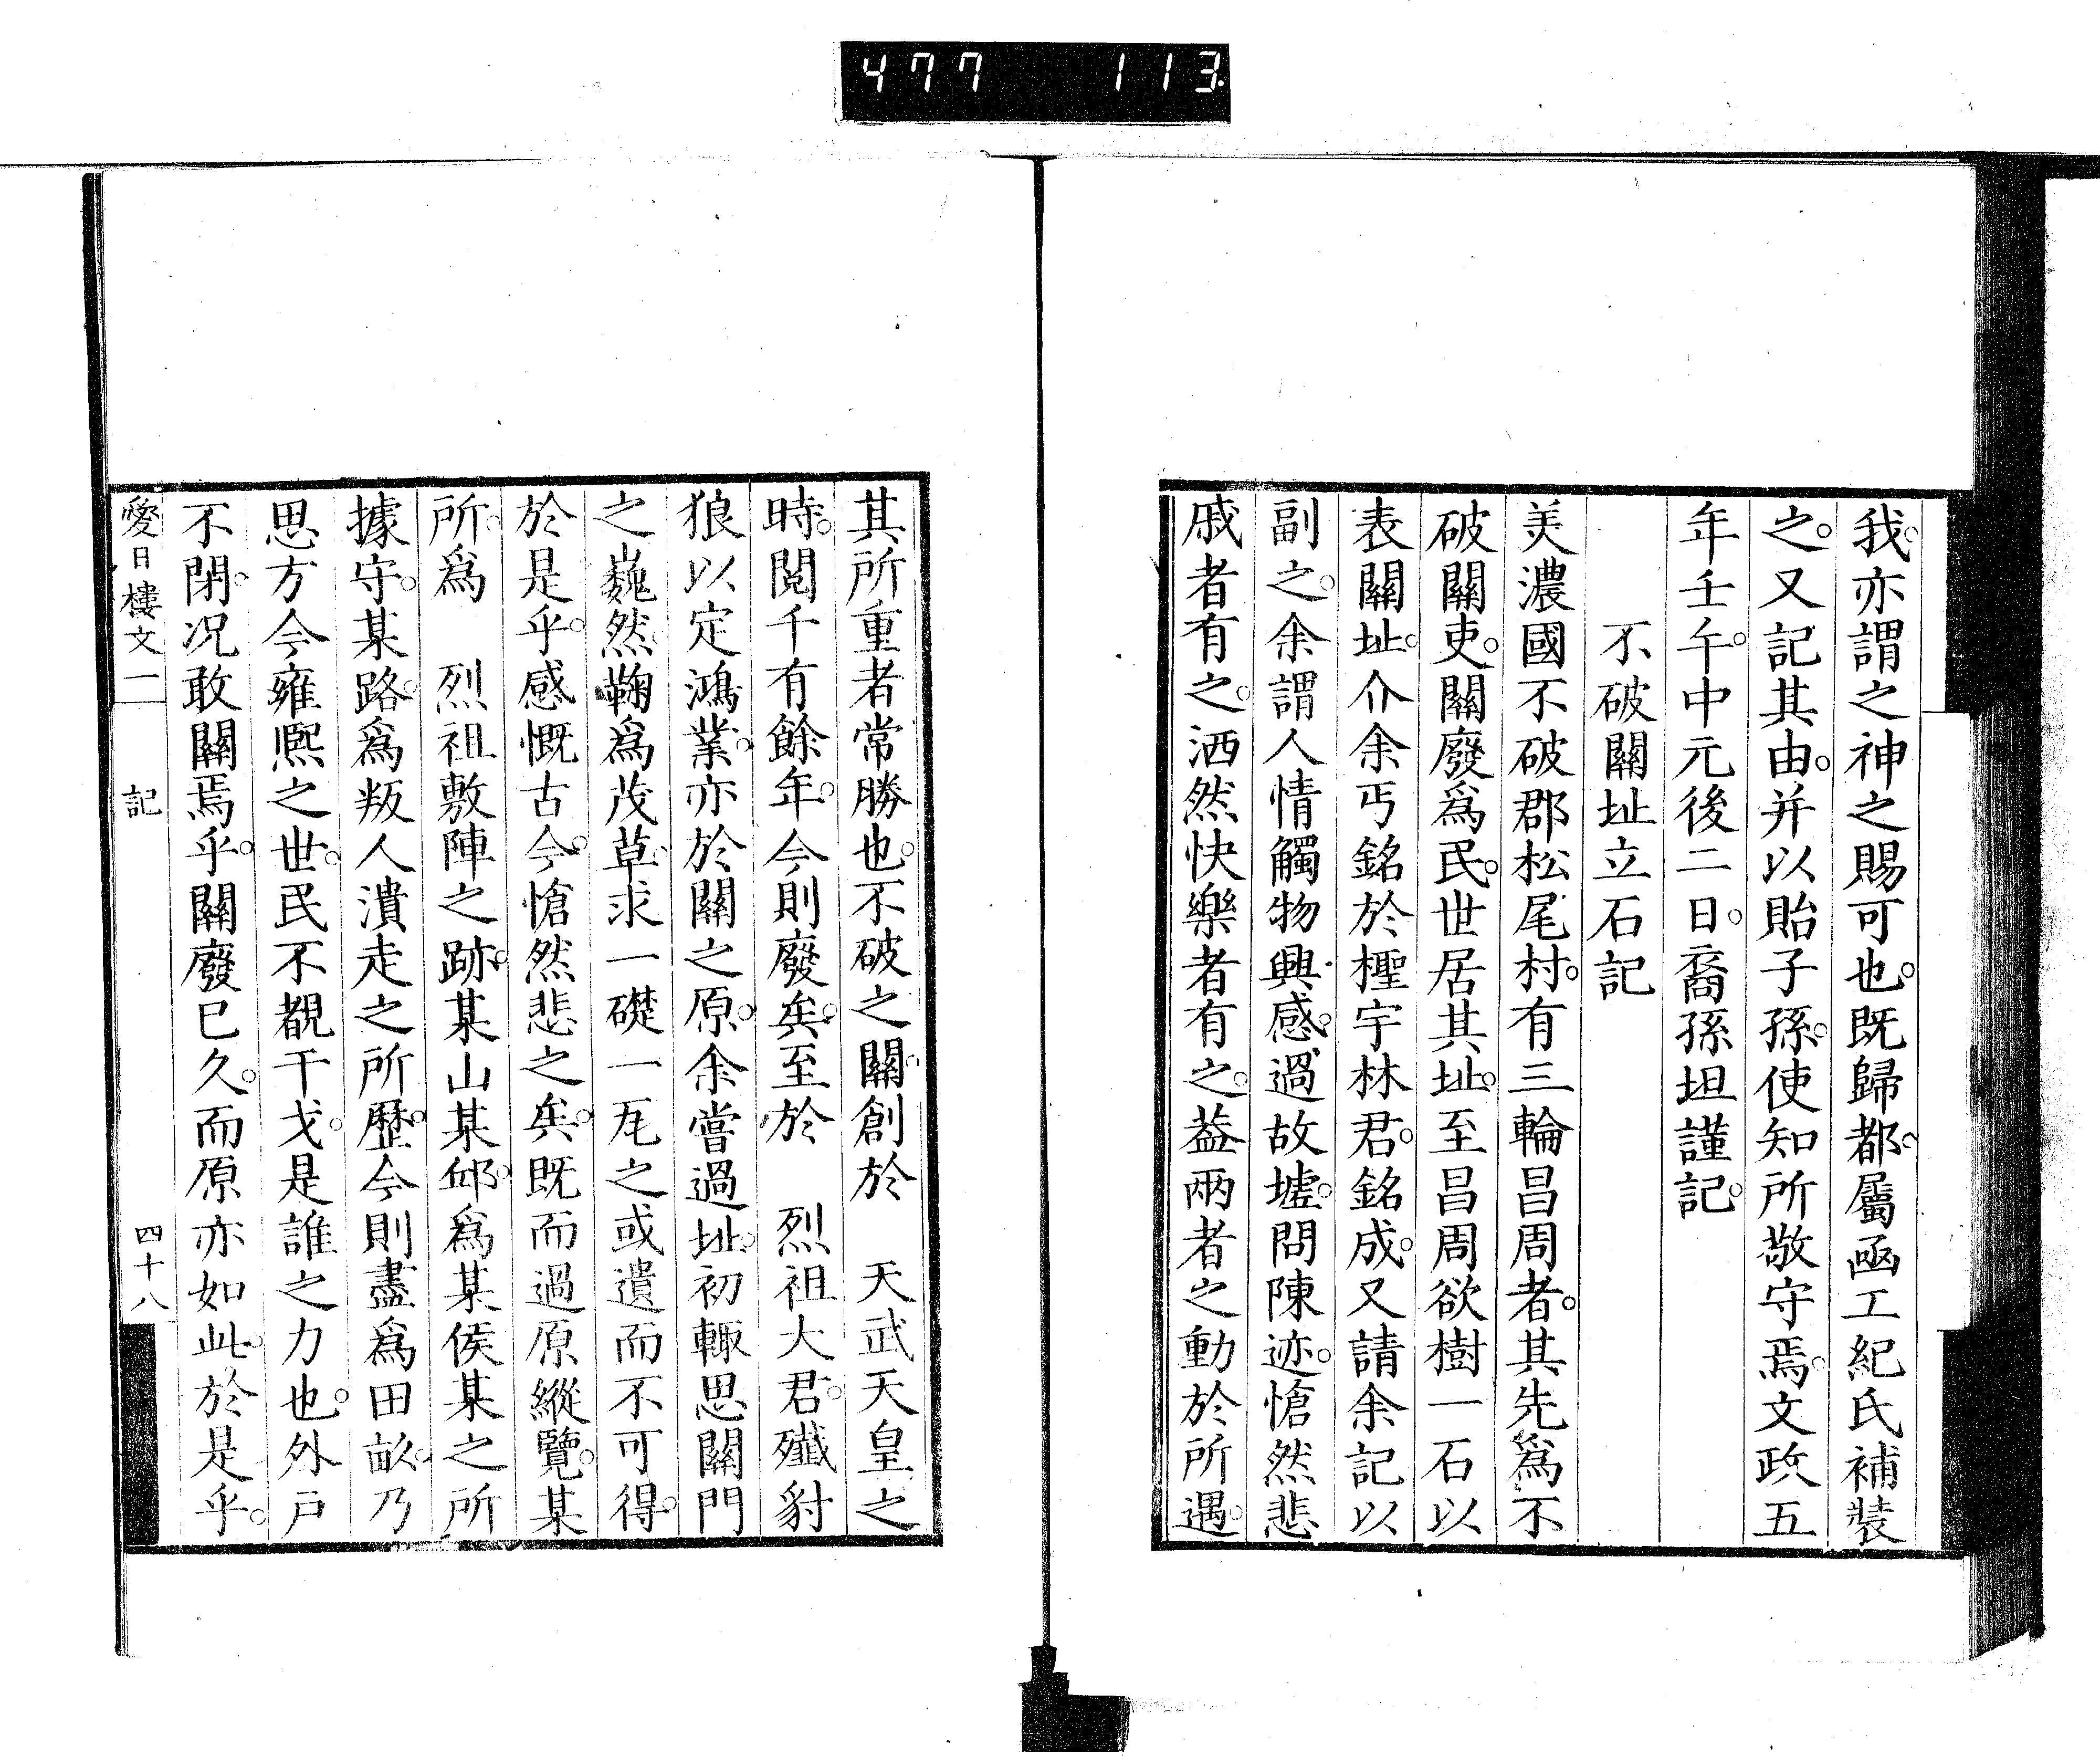 477 113
我亦謂之神之賜可也。既歸都。屬凾工紀氏補裝
之。又記其由。并以貽子孫。使知所敬守焉。文政五
年壬午。中元後二日。裔孫坦謹記。
不破關址立石記
美濃國不破郡松尾村。有三輪昌周者。其先爲不
破關吏。關廢爲民。世居其址。至昌周欲樹一石以
表關址。介余丐銘於檉宇林君。銘成。又請余記以
副之。余謂人情觸物興感。過故墟。問陳迹。愴然悲
戚者有之。洒然快樂者有之。葢兩者之動於所遇。
其所重者常勝也。不破之關。創於　天武天皇之
時。閱千有餘年。今則廢矣。至於　烈祖大君。殲豺
狼以定鴻業。亦於關之原。余嘗過址。初輙思關門
之巍然鞠爲茂草。求一礎一瓦之或遺而不可得。
於是乎。感慨古今。愴然悲之矣。既而過原縱覽。某
所。爲　烈祖敷陣之跡。某山某邱。爲某侯某之所
據守。某路。爲叛人潰走之所歷。今則盡爲田畝。乃
思方今雍熈之世。民不覩干戈。是誰之力也。外戶
不閉。况敢關焉乎。關廢已久。而原亦如此。於是乎。
愛日樓文二　記　四十八